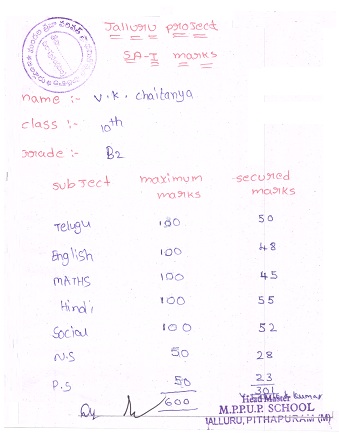 Jalluru project
SA-I marks
name :- V.K. chaitanya
class :- 10th
Grade :- B2
subject maximum marks secured marks
Telugu 100 50
English 100 48
MATHS 100 45
Hindi 100 55
Social 100 52
N.S 50 28
P.S 50 23
600 301
Head Master
M.P.P.U.P. SCHOOL
JALLURU, PITHAPURAM (M)